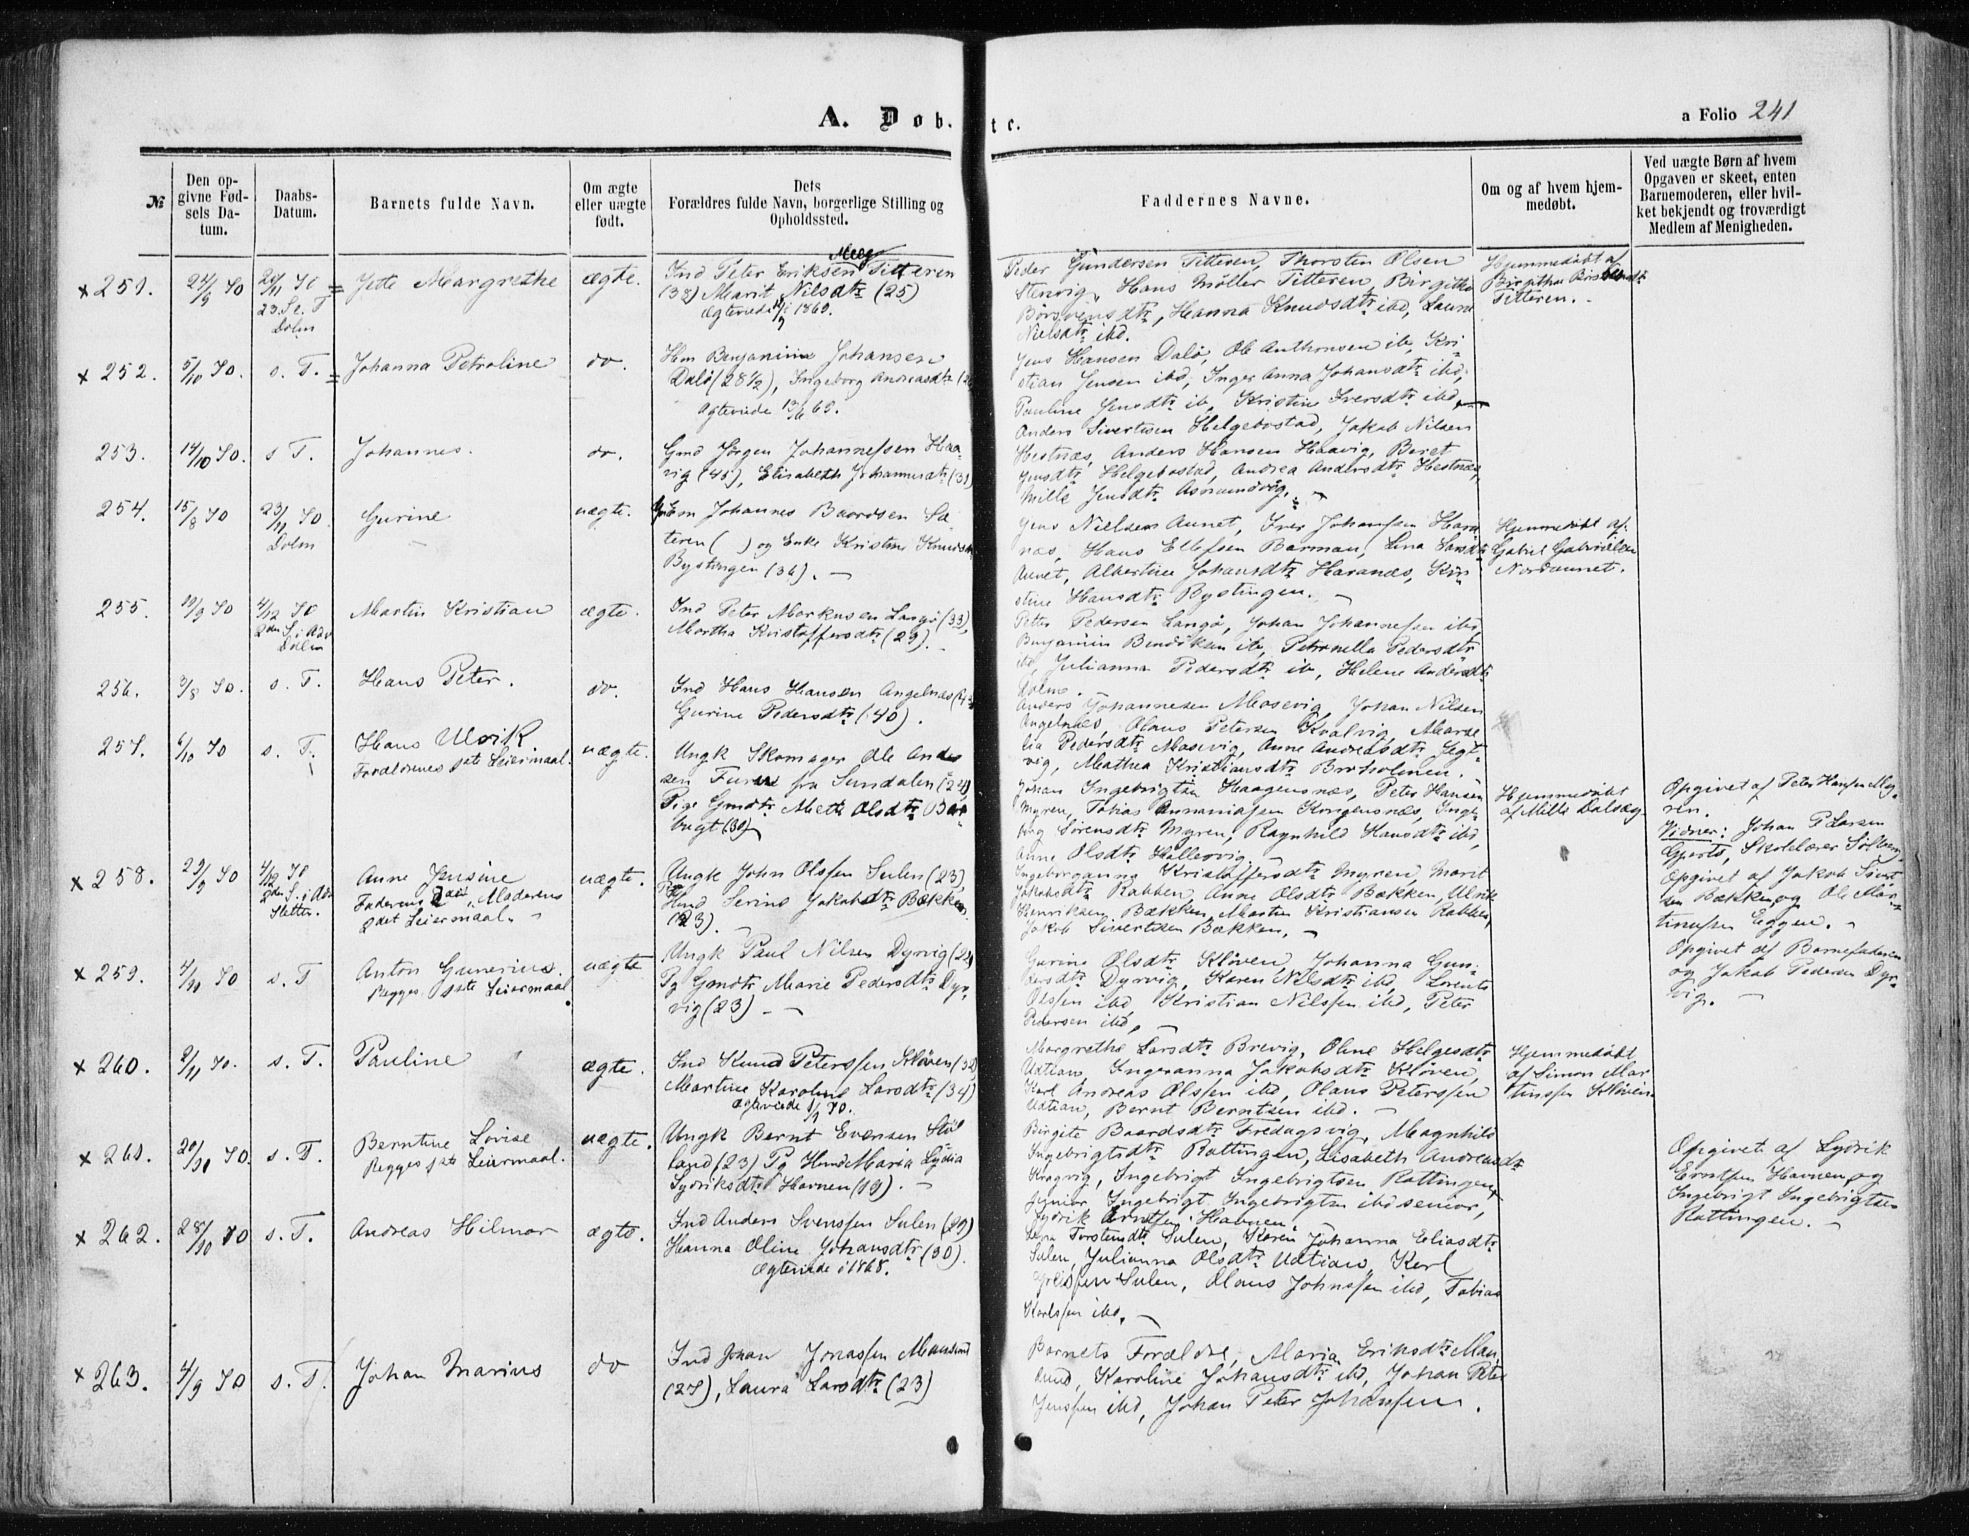 A. Døb.
tc.
a Folio 241
№
Den opgivne Fødsels Datum.
Daabs-Datum.
Barnets fulde Navn.
Om ægte eller uægte født.
Dets Forældres fulde Navn, borgerlige Stilling og Opholdssted.
Faddernes Navne.
Om og af hvem hjemmedøbt.
Ved uægte Børn af hvem Opgaven er skeet, enten Barnemoderen, eller hvilket bekjendt og troværdigt Medlem af Menigheden.
x 251. 24/9 70 20/11 70 Jette Margrethe ægte. Ind Peter Eriksen Titteren
23. S. e. T. (38) Marit Nilsdtr (25)
Dolm Ægteviede 1869.
Peder Gundersen Titteren, Thorsten Olsen
Stenvig, Hans Møller Titteren, Birgitte
Hanna Knudsdtr ibd,
Nielsdtr ibd.
Hjemmedøbt af
Birgitha
Titteren.
x 252. 5/10 70. s. T. Johanna Petroline do. Benjamin Johansen
Dalø (28 1/2), Ingeborg Andreasdtr
Ægteviede 69.
Jens Hansen Dalø, Ole Anthonsen ib, Kri-
stian Jensen ibd, Inger Anna Johansdtr ibd,
Pauline Jensdtr ib, Kristine Iversdtr ibd,
253. 14/10 70. s T. Johannes. do. Gmd Jørgen Johannessen Haa-
vig (45), Elisabeth Johannesdtr (31)
Anders Sivertsen Helgebostad, Jakob Nilsen
Hestnæs, Anders Hansen Haavig, Beret
Jensdtr Helgebostad, Andrea Andersdtr Hestnæs,
Mille Jensdtr
254. 15/8 70 23/11 70 Gurine uægte. Em Johannes Baardsen Sæ-
Dolm teren ( ) og Enke Kristine Knudsdtr
Bystingen (36).
Jens Nielsen Aunet, Iver Johansen Hava-
næs, Hans Ellefsen Barman, Lina Larsdtr
Aunet, Albertine Johansdtr Havanæs, Kri-
stine Hansdtr Bystingen.
Hjemmedøbt af
Gabriel Gabrielsen
Nordaunet.
255. 19/9 70 4/12 70 Martin Kristian ægte. Ind Peter Markusen Langø (33),
2den S. i Adv Martha Kristoffersdtr (29).
Dolm
Petter Pedersen Langø, Johan Johannesen ibd,
Benjamin Bendiksen ib, Petronella Pedersdtr
ib, Julianna Pedersdtr ib, Helene Andersdtr
Dolmo.
256. 3/8 70. s. T. Hans Peter. do. Ind Hans Hansen Angelnæs
Gurine Pedersdtr (40).
Anders Johannesen Mosevig, Johan Nilsen
Angelnæs, Olaus Petersen Kvalvig, Marse-
lia Pedersdtr Mosevig, Anne Andreasdtr Segt-
vig, Mathea Kristiansdtr Broholmen.
257. 6/10 70 s. T. Hans Ulrik uægte. Ungk Skomager Ole Ander
Forældrenes 1ste Leiermaal. sen fra Sundalen (24)
Pige Gmdtr Mette Olsdtr Bar-
bugt (30)
Johan Ingebrigtsen Haagensnæs, Peter Hansen
Myren, Tobias Kongensnæs, Inge-
borg Sørensdtr Myren, Ragnhild Hansdtr ibd,
Anne Olsdtr Hallervig.
Hjemmedøbt
af Mille Dalsæg
Opgivet af Peter Hansen My-
ren.
Vidner: Johan P Larsen
Skolelærer
x 258. 29/9 70 4/12 70 Anne Jensine uægte. Ungk John Olsen Sulen (23),
2den S. i Adv Faderens 2det, Moderens Serine Jakobsdtr Bækken
Sletten. 2det Leiermaal. (23).
Ingeborganna Kristoffersdtr Myren, Marit
Jakobsdtr Rabben, Anne Olsdtr Bækken, Ulrik
Henriksen Bækken, Martin Kristiansen Rabben,
Jakob Sivertsen Bækken.
Opgivet af Jakob Sivert-
sen Bækken og Ole Mar-
tinusen Eggen.
x 259. 4/10 70 s. T Anton Gunerius. uægte Ungk Paul Nilsen Dyrvig
Begges 1ste Leiermaal. Pg Gmdtr Marie Pedersdtr Dyr-
vig (23)
Gurine Olsdtr Kløven, Johanna Gun-
dersdtr Dyrvig, Karen Nilsdtr ibd, Lorents
Olsen ibd, Kristian Nilsen ibd, Peter
Pedersen ibd,
Opgivet af Barnefaderen
og Jakob Pedersen Dyr-
vig.
x 260. 2/11 70. s. T. Pauline ægte. Ind Knud Peterssen Kløven (32)
Martine Karoline Larsdtr (34)
Ægteviede 70.
Margrethe Larsdtr Brevig, Oline Helgesdtr
Udtian, Ingeranna Jakobsdtr Kløven,
Karl Andreas Olssen ibd, Olaus Peterssen
Udtian, Bernt Berntsen ibd.
Hjemmedøbt
af Simon Mar-
tinssen Kløven
x 261. 20/10 70. s. T. Berntine Lovise uægte. Ungk Bernt Evensen Støl
Begges 1ste Leiermaal. land (23) Pg Maria Lydia
Lydriksdtr Havnen (19).
Birgite Baardsdtr Fredagsvig, Magnhild
Ingebrigtsdtr Rottingen, Lisabeth Andreasdtr
Kragvig, Ingebrigt Ingebrigtsen Rottingen
junior, Ingebrigt Ingebrigtsen ibd senior,
Lydrik Erntsen Havnen.
Opgivet af Lydrik
Erntsen Havnen og
Ingebrigt Ingebrigtsen
Rottingen.
x 262. 28/10 70 s. T. Andreas Hilmar ægte. Ind Anders Svenssen Sulen (29)
Hanna Oline Johansdtr (30).
Ægteviede i 1868.
Torstensdtr Sulen, Karen Johanna Eliasdtr
Sulen, Julianna Olsdtr Udtian, Karl
Sulen, Olaus Johnssen ibd, Tobias
Karlsen ibd.
x 263. 4/9 70 s. T. Johan Marius do Ind Johan Jonassen Mausund
(27), Laura Larsdtr (23)
Barnets Forældre, Maria Eriksdtr Mau-
sund, Karoline Johansdtr ibd, Johan Peter
Jenssen ibd, Johan Peter Johansen.